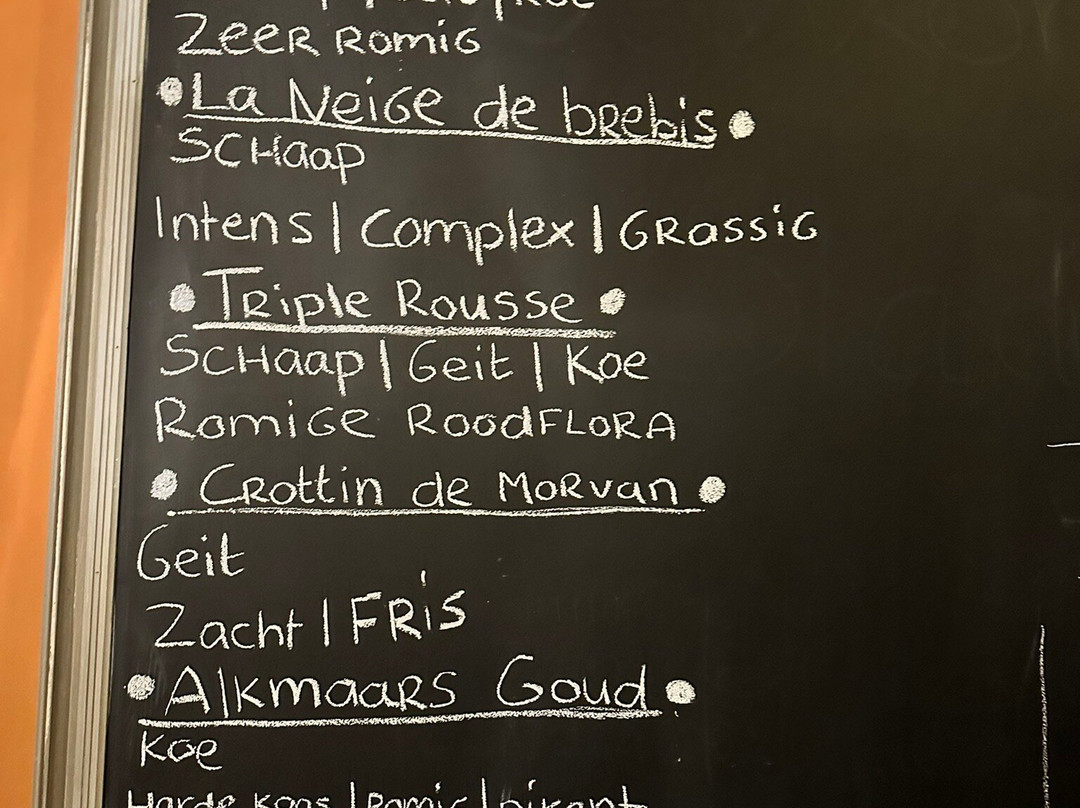 Zeer Romig
• La Neige de brebis •
Schaap
Intens | Complex | Grassig
• Triple Rousse •
Schaap | Geit | Koe
Romige Roodflora
• Crottin de Morvan •
Geit
Zacht | Fris
• Alkmaars Goud •
Koe
Harde Kaas | Romig | pikant